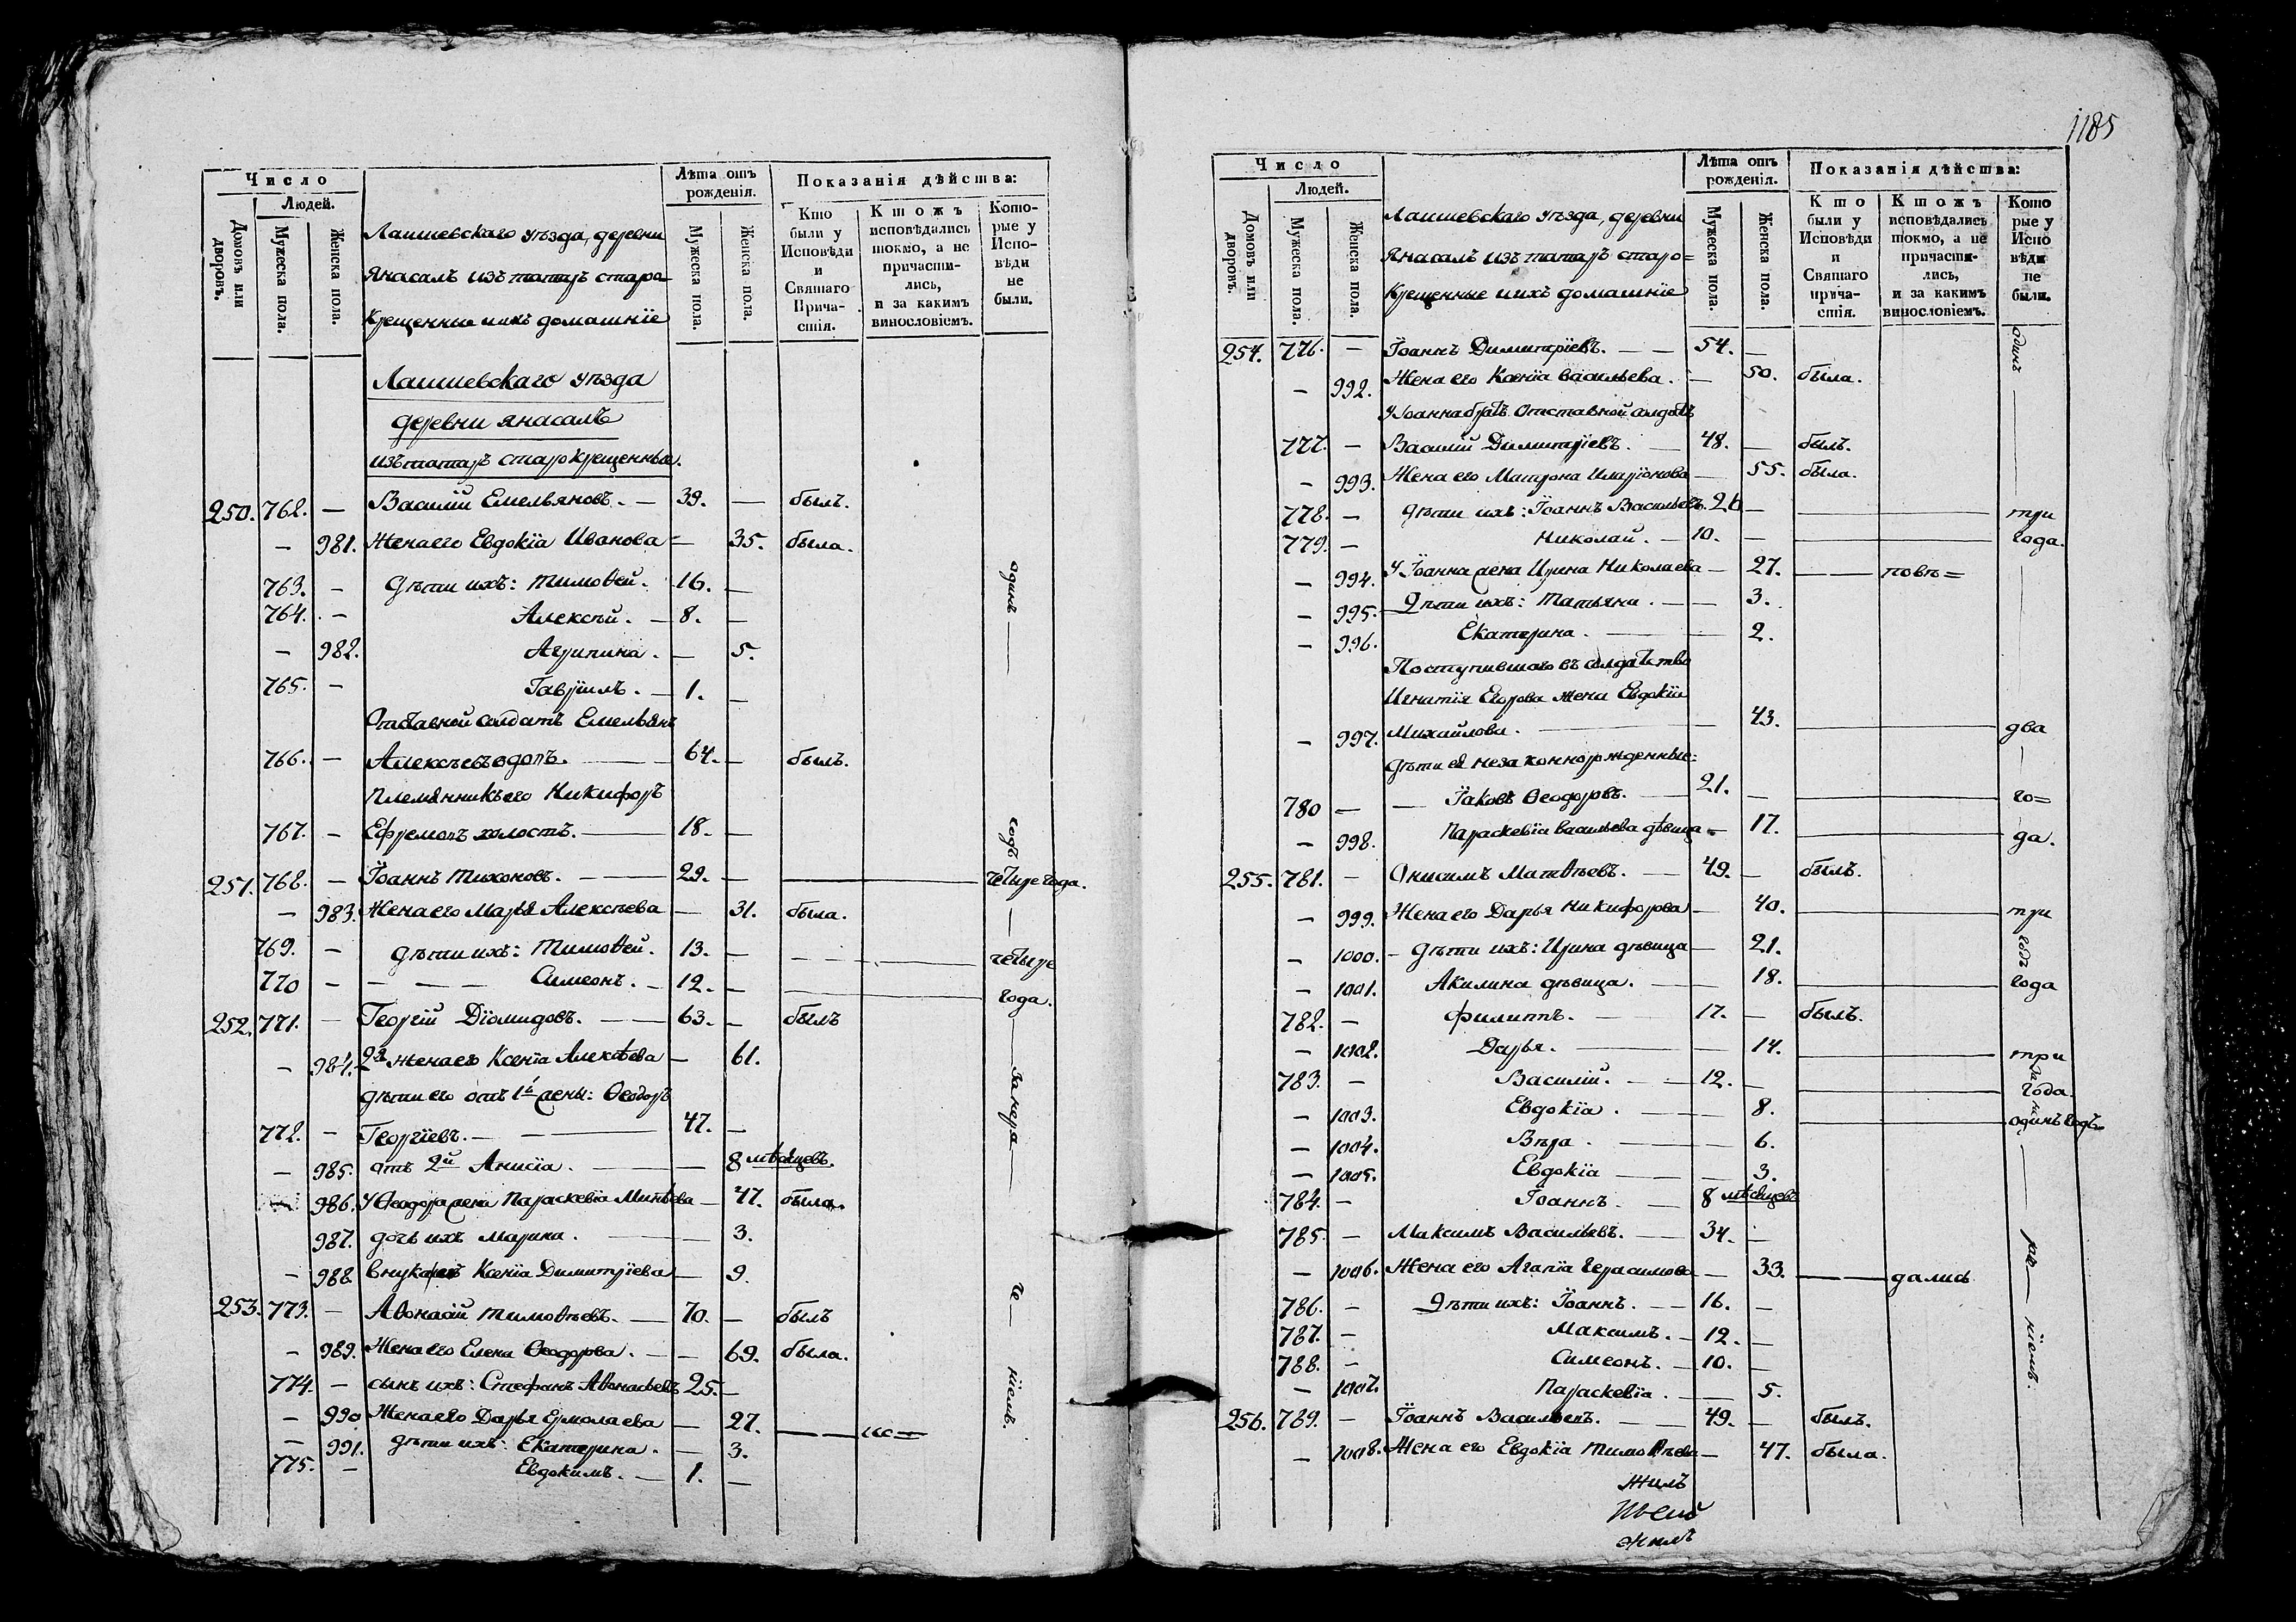 Число
Людей.
Домовъ или дворовъ.
Мужеска пола.
Женска пола.
Лаишевскаго уѣзда, деревни
Янасалъ изъ татаръ старо
Крещенные и ихъ домашніе
Лѣта отъ рожденія.
Мужеска пола.
Женска пола.
Показанія дѣйства:
Кто были у Исповѣди и Святаго Прича-стія.
Ктожъ исповѣдались токмо, а не причасти-лись, и за какимъ винословіемъ.
Кото-рые у Испо-вѣди не были.
Лаишевскаго уѣзда
деревни Янасалъ
изъ татаръ старокрещенные.
250. 762. — Василій Емельяновъ. — 39. — былъ.
— 981. Жена его Евдокіа Иванова — 35. была.
763. — Дѣти ихъ: Тимоѳей. 16. —
764. — Алексѣй. — 8. —
— 982. Агрипина. — 5.
765. — Гавріилъ. — 1. —
Отставной солдатъ Емельянъ
766. — Алексѣевъ вдовъ. — 64. — былъ.
Племянникъ его Никифоръ
767. — Ефремовъ холостъ. — 18. —
251. 768. — Іоаннъ Тихоновъ. — 29. — четыре года.
— 983. Жена его Марья Алексѣева — 31. была.
769. — Дѣти ихъ: Тимоѳей. 13. — четыре
770 — Симеонъ. — 12. — года.
252. 771. — Георгій Діомидовъ. — 63. — былъ
— 984. 2я жена его Ксеніа Алексѣева — 61.
Дѣти его отъ 1й жены: Ѳеодоръ
772. — Георгіевъ. — 47. —
— 985. отъ 2й Анисіа. — 8 мѣсяцевъ.
986. У Ѳеодора жена Параскевіа — 47. была.
987. дочь ихъ Марина. — 3.
— 988 внука Ксеніа Димитріева — 9.
253. 773. — Аѳонасій Тимоѳѣевъ. — 70. — былъ
— 989. Жена его Елена Ѳеодорова. — 69. была.
774. — сынъ ихъ: Стефанъ Аѳонасьевъ 25. —
— 990 Жена его Дарья Ермолаева — 27. — ис=
— 991. Дѣти ихъ: Екатерина. — 3.
775. — Евдокимъ. — 1. —
одинъ
годъ
за нера
че
ніемъ.
1185
Число
Людей.
Домовъ или дворовъ.
Мужеска пола.
Женска пола.
Лаишевскаго уѣзда, деревни
Янасалъ изъ татаръ старо=
Крещенные и ихъ домашніе
Лѣта отъ рожденія.
Мужеска пола.
Женска пола.
Показанія дѣйства:
Кто были у Исповѣди и Святаго прича-стія.
Ктожъ исповѣдались токмо, а не причасти-лись, и за какимъ винословіемъ.
Кото рые у Испо вѣди не были.
254. 776. — Іоаннъ Димитріевъ. — 54. —
— 992. Жена его Ксеніа Васильева. — 50. была.
У Іоанна братъ Отставной солдатъ
777. — Василій Димитріевъ. — 48. — былъ.
— 993. Жена его Матрона Иларіонова — 55. была.
778. — Дѣти ихъ: Іоаннъ Васильевъ. 26 — три
779. — Николай. — 10. — года.
— 994. У Іоанна жена Ирина Николаева — 27. — повѣ=
— 995. — Дѣти ихъ: Татьяна. — 3.
— 996. Екатерина. — 2.
Поступившаго въ солдатство
Игнатія Егорова жена Евдокіа
— 997. Михайлова. — 43. — два
Дѣти ея незаконнорожденные:
780 — Іаковъ Ѳеодоровъ. — 21. — го=
— 998. Параскевіа Васильева дѣвица — 17. — да.
255. 781. — Онисимъ Матвѣевъ. — 49. — былъ.
— 999. Жена его Дарья Никифорова — 40. — три
— 1000. — Дѣти ихъ: Ирина дѣвица — 21.
— 1001. Акилина дѣвица. — 18. — года
782. — Филиппъ. — 17. — былъ.
— 1002. Дарья. — 14. — три
783. — Василій. — 12. — года.
— 1003. Евдокіа. — 8. — одинъ годъ
— 1004. Вѣра. — 6.
— 1005. Евдокіа — 3.
784. — Іоаннъ. — 8 мѣсяцевъ
785. — Максимъ Васильевъ. — 34. —
— 1006. Жена его Агапіа Герасимова — 33. — дались
786. — Дѣти ихъ: Іоаннъ. — 16. —
787. — Максимъ. — 12. —
788. — Симеонъ. — 10. —
— 1007. Параскевіа. — 5.
256. 789. — Іоаннъ Васильевъ. — 49. — былъ.
— 1008. Жена его Евдокіа Тимоѳѣева — 47. была.
одинъ
годъ
за
не
ра
ніемъ.